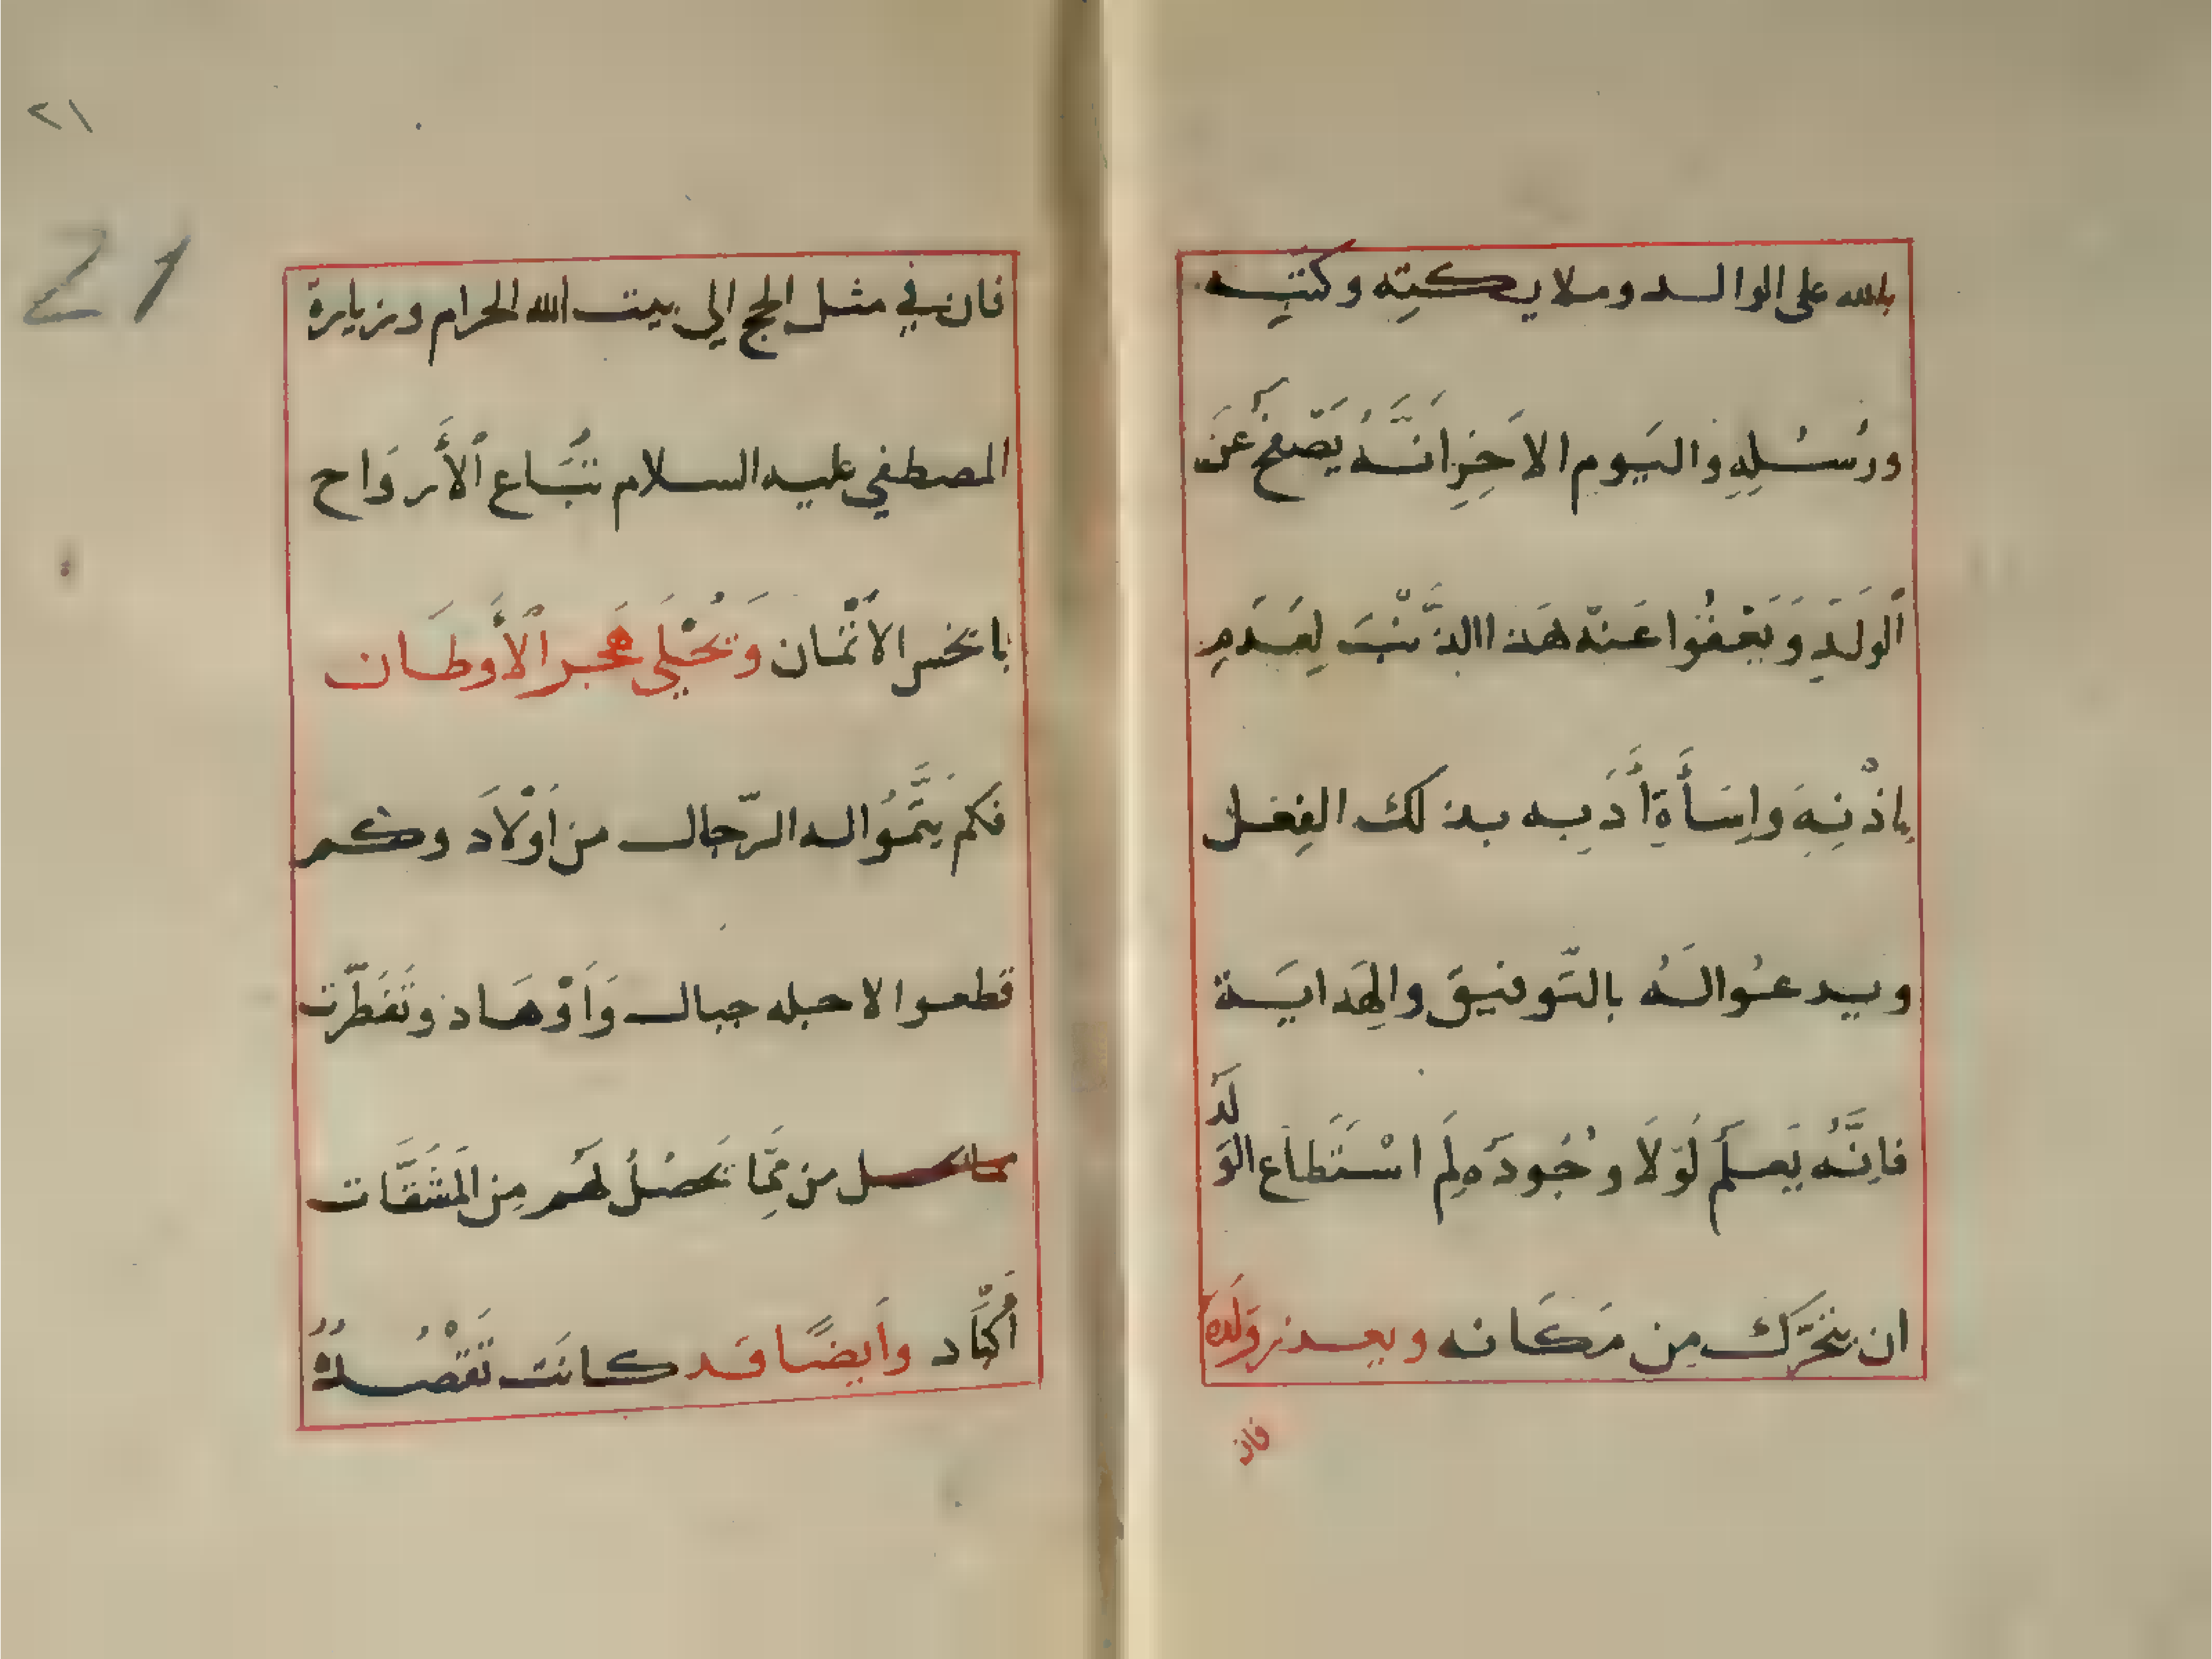 بالله على الوالد وملايكتِه وكتبِه
ورُسُلِهِ واليَومِ الاَخِرِ انَّهُ يَصْفَحُ عَن
ٱلوَلَدِ وَيَعْفُوا عَنهُ هَذا الذَّنْبَ لِعَدَمِ
بِاِذْنِهِ وَاِسَأَةِ أَدَبِه بذلك الفِعَل
ويدعُوا لَهُ بالتَّوفيق والهَدايَة
فاِنَّهُ يَعلَم لَوْلَا وُجُودَه لَم اسْتَطَاع الوَلَد
ان يتحَرَّك مِن مَكَانه ويعذر وَلَده
فان
٢١
21
فان في مثل الحج الي بيت الله الحرام وزيارة
المصطفي عليه السلام تُبَاع ٱلأَروَاح
بابخس الاَثْمان وَتُحْلَي هَجر ٱلأَوطَان
فكم يَتَّمُوا له الرّجال من اَوْلَاد وكم
قطعوا لاجله جبال وَاَوْهَاد وتَفَطَّرَت
من مِمَّا تَحصُلُ لَهُم مِن المَشَقَّات
أَكبَاد وَاَيضًا قد كانَت تَقْصُدُهُ